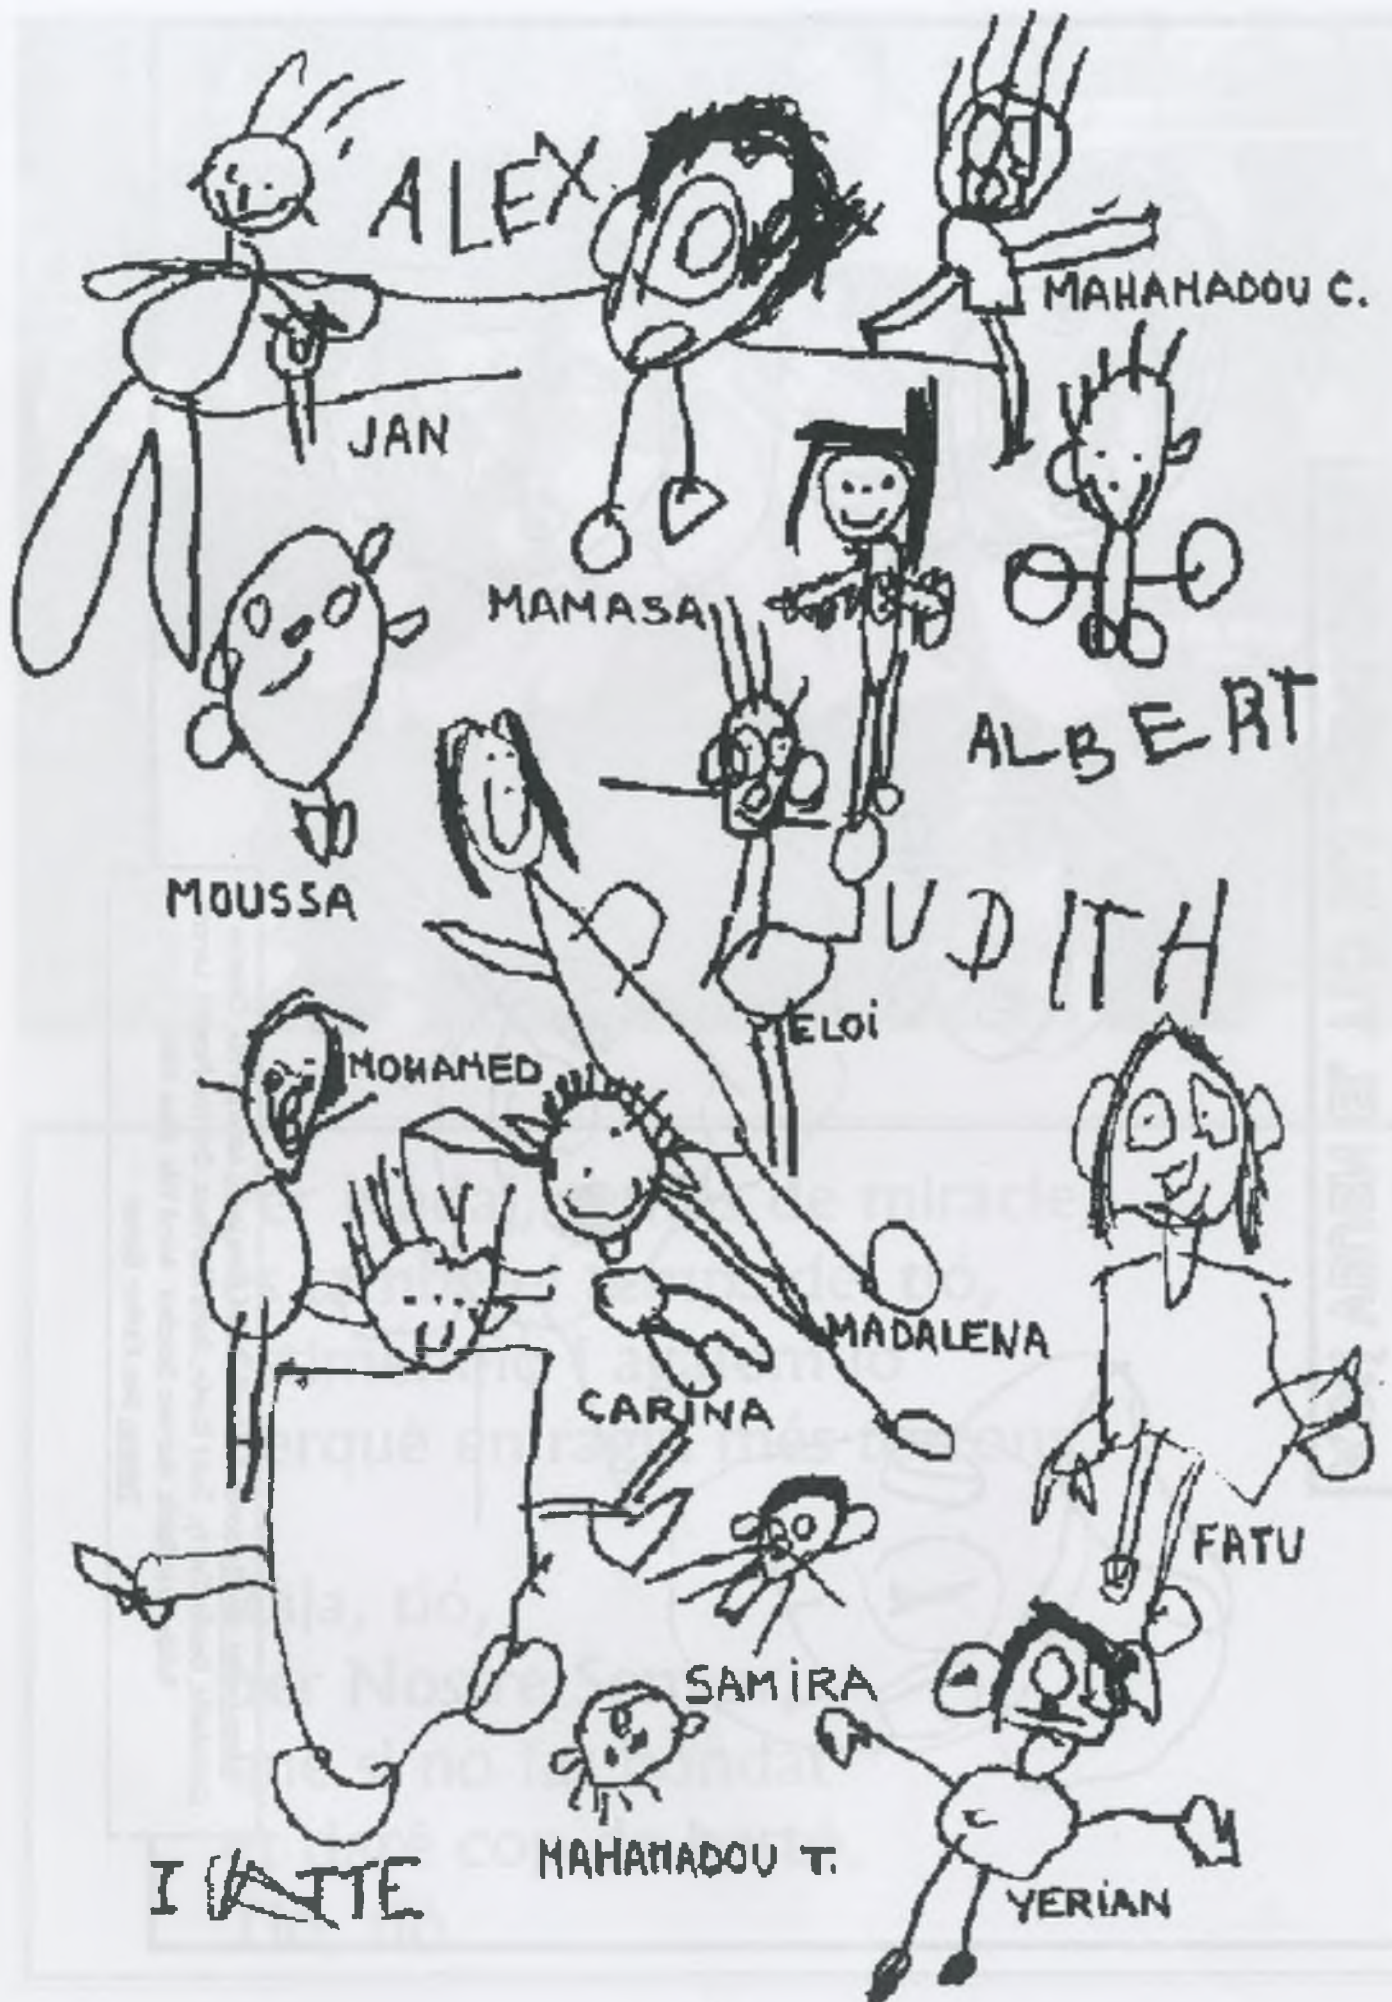 ALEX
MAHAMADOU C.
JAN
MAMASA
ALBERT
MOUSSA
JUDITH
ELOi
MOHAMED
MADALENA
CARiNA
FATU
SAMiRA
MAHAMADOU T.
YERiAN
de miracle